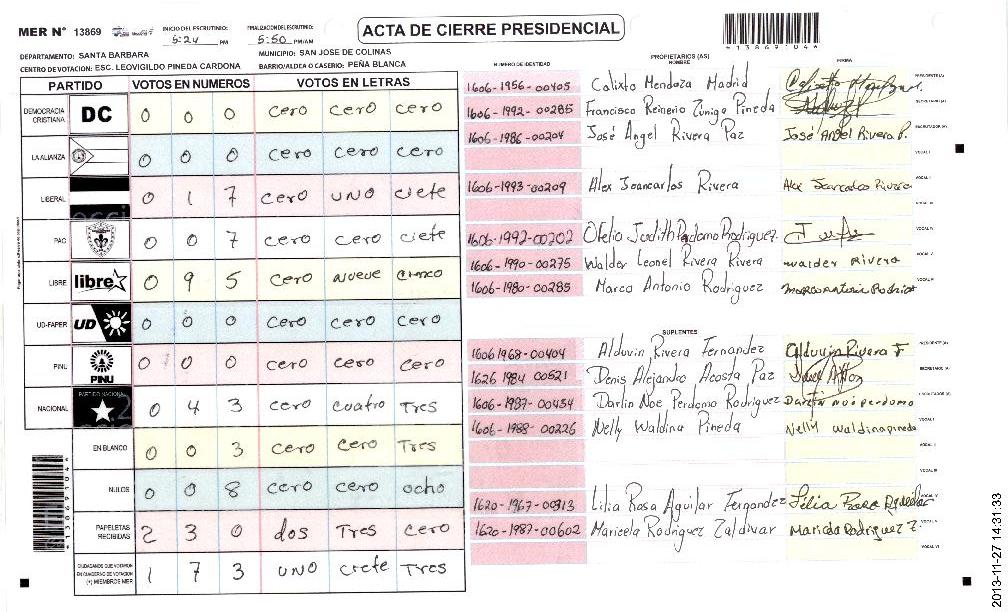 MER N° 13869
INICIO DEL ESCRUTINIO: 5:24 PM
FINALIZACION DEL ESCRUTINIO: 5:50 PM/AM
ACTA DE CIERRE PRESIDENCIAL
*1386904*
DEPARTAMENTO: SANTA BARBARA
MUNICIPIO: SAN JOSE DE COLINAS
CENTRO DE VOTACION: ESC. LEOVIGILDO PINEDA CARDONA
BARRIO/ALDEA O CASERIO: PEÑA BLANCA
PARTIDO VOTOS EN NUMEROS VOTOS EN LETRAS
DEMOCRACIA CRISTIANA DC 0 0 0 cero cero cero
LA ALIANZA 0 0 0 cero cero cero
LIBERAL 0 1 7 cero uno ciete
PAC 0 0 7 cero cero ciete
LIBRE libre 0 9 5 cero nueve cinco
UD-FAPER UD 0 0 0 cero cero cero
PINU PINU 0 0 0 cero cero cero
NACIONAL PARTIDO NACIONAL 0 4 3 cero cuatro Tres
EN BLANCO 0 0 3 cero cero Tres
NULOS 0 0 8 cero cero ocho
PAPELETAS RECIBIDAS 2 3 0 dos Tres cero
CIUDADANOS QUE VOTARON EN CUADERNO DE VOTACION (+) MIEMBROS MER 1 7 3 uno ciete Tres
*1386904*
NUMERO DE IDENTIDAD PROPIETARIOS (AS) NOMBRE FIRMA
1606-1956-00405 Calixto Mendoza Madrid PRESIDENTE (A)
1606-1992-00285 Francisco Reinerio Zuniga Pineda SECRETARIO (A)
1606-1986-00204 José Angel Rivera Paz José Angel Rivera P. ESCRUTADOR (A)
VOCAL I
1606-1993-00209 Alex Joancarlos Rivera Alex Joancarlos Rivera VOCAL II
VOCAL III
1606-1992-00202 Otelio Judith Perdomo Rodriguez VOCAL IV
1606-1990-00275 Walder Leonel Rivera Rivera Walder Rivera VOCAL V
1606-1980-00285 Marco Antonio Rodriguez VOCAL VI
SUPLENTES
1606 1968-00404 Alduvin Rivera Fernandez Alduvin Rivera F. PRESIDENTE (A)
1626 1984 00521 Denis Alejandro Acosta Paz SECRETARIO (A)
1606-1987-00454 Darlin Noe Perdomo Rodriguez Darlin noe perdomo ESCRUTADOR (A)
1606-1988-00226 Nelly Waldina Pineda Nelly waldina pineda VOCAL I
VOCAL II
VOCAL III
1620-1967-00313 Lilia Rosa Aguilar Fernandez Lilia Rosa Aguilar VOCAL IV
1620-1987-00602 Maricela Rodriguez Zaldivar Maricela Rodriguez Z. VOCAL V
VOCAL VI
2013-11-27 14:31:33